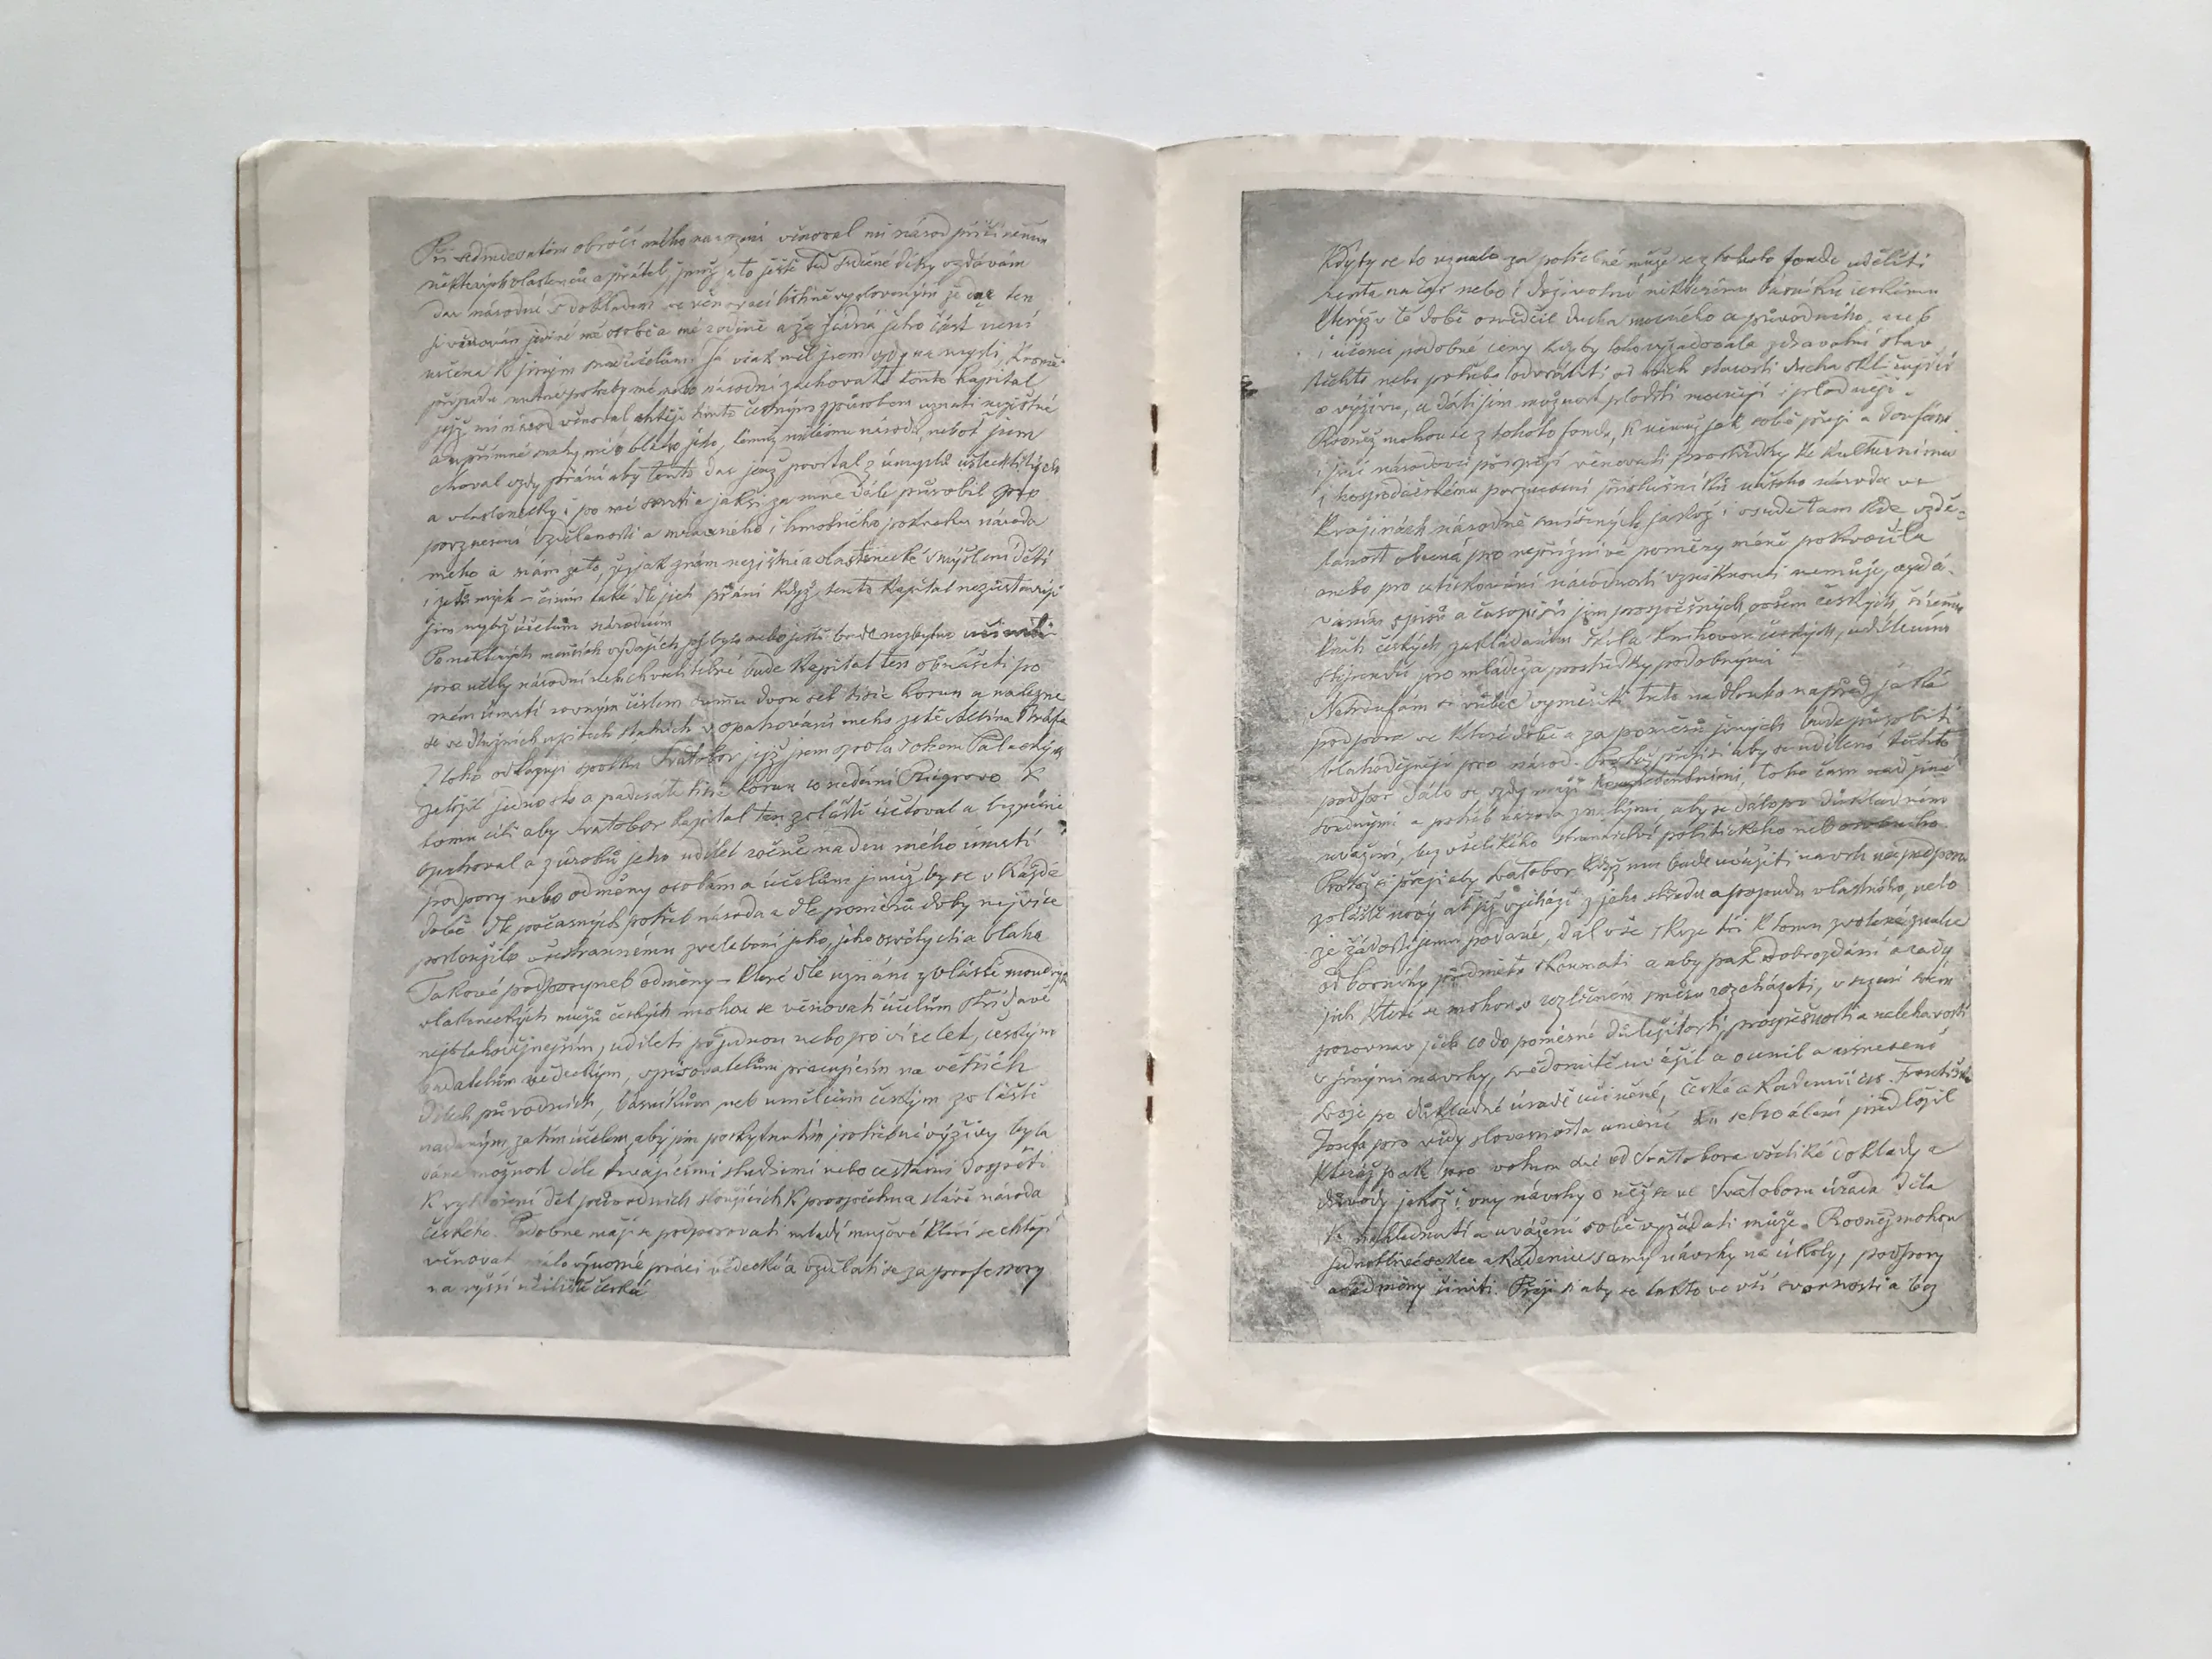 Při sedmdesátém obročí mého narození věnoval mi národ přičiněním
některých vlastenců a přátel, jimž za to ještě teď srdečné díky vzdávám
dar národní s dokladem ve věnovací listině vysloveným že dar ten
je věnován jedině mé osobě a mé rodině a že žádná jeho část není
určena k jiným účelům. Já však měl jsem vždy na mysli, kromě
případu nutné potřeby mé nebo národní zachovati tento kapitál
jejž mi národ věnoval chtěje tímto čestným způsobem uznati nezištné
a upřímné snahy mé o blaho jeho, témuž milému národu, neboť jsem
choval vždy přání aby tento dar jenž povstal z úmyslů ušlechtilých
a vlastenecky i po mé smrti jaksi za mne dále působil pro
povznesení vzdělanosti a mravného i hmotného pokroku národa
mého a mám za to, že jak znám nezištné a vlastenecké smýšlení dětí
i zetů mých – činím také dle jich přání když tento kapitál nezůstavuji
jim nýbrž účelům národním
Po některých menších výdajích jež bylo nebo ještě bude nezbytno učiniti
pro účely národní neb chvalitebné bude kapitál ten obnášeti po
mém úmrtí rovným číslem sumu dvou set tisíc korun a nalezne
se ve dlužních úpisech státních v opatrování mého zetě Albína Bráfa
Z toho odkazuji spolku Svatobor jejž jsem spolu s otcem Palackým
založil jednosto a padesát tisíc korun co nadání Riegrovo K
tomu cíli aby Svatobor kapitál ten zvláště účtoval a bezpečně
opatroval a z úroků jeho udílel ročně na den mého úmrtí
podpory nebo odměny osobám a účelům jimiž by se v každé
době dle počasných potřeb národa a dle poměrů doby nejvíce
posloužilo všestrannému zvelebení jeho, jeho osvěty cti a blaha
Takové podpory neb odměny – které dle uznání zvláště moudrých
vlasteneckých mužů českých mohou se věnovati účelům střídavě
nejblahodějnejším, udíleti po jednou nebo po více let, českým
badatelům vědeckým, spisovatelům pracujícím na větších
dílech původních, básníkům neb umělcům českým zvláště
nadaným, za tím účelem, aby jim poskytnutím potřebné výživy byla
dána možnost déle trvajícími studiemi nebo cestami dospěti
k vytvoření děl původních sloužících k prospěchu a slávě národa
českého. Podobně mají se podporovati mladí mužové kteří se chtějí
věnovat málo výnosné práci vědecké a vzdělati se za professory
na vyšší učiliště česká
Kdyby se to uznalo za potřebné může se z tohoto fondu uděliti
renta na čas nebo i doživotní některému básníku českému
kterýž v té době osvědčil ducha mocného a původního, neb
i učenci podobné ceny kdyby toho vyžadovala zdravotní stav
těchto nebo potřeba odvrátiti od nich starosti ducha skličující
o výživu, a dáti jim možnost ploditi mocněji i plodněji.
Rovněž mohou se z tohoto fondu, k němuž jak sobě přeji a doufám
i jiní národovci přispějí věnovati prostředky ke kulturnímu
i hospodářskému povznesení příslušníků našeho národa ve
krajinách národně smíšených jakož i osudě tam kde vzdě-
lanost obecná pro nepříznivé poměry méně pokročila
anebo pro utiskování národnosti vzniknouti nemůže, vydá-
váním spisů a časopisů jim prospěšných ovšem českých, šířením
knih českých, zakládáním škol a knihoven českých, udílením
stipendií pro mládež a prostředky podobnými
Netroufám si určitě vyměřiti tuto na dlouho napřed jaká
podpora ve které době a za poměrů jiných bude působiti
blahodějněji pro národ. Protož přeji si aby se udílení těchto
podpor dálo se vždy muži kompetentními, toho času nad jiné
soudnými a potřeb národa znalými, aby se dálo po důkladném
uvážení, bez všelikého strannictví politického neb osobního.
Protož si přeji aby Svatobor když mu bude uvážiti návrh na podporu
zvláště nový ať již vychází z jeho středu a popudu vlastního, nebo
ze žádosti jemu podané, dal vše skrze tři k tomu zvolené znalce
odborníky předmětu zkoumati a aby pak dobrozdání a rady
jich které se mohou v rozličném směru rozcházeti, v sezení svém
porovnav jich co do poměrné důležitosti, prospěšnosti a naléhavosti
s jinými návrhy, svědomitě uvážil a ocenil a usnesení
svoje po důkladné úvaze učiněné, České akademii cís. Františka
Josefa pro vědy slovesnost a umění ku schválení předložil
kteráž pak pro votum své od Svatobora všeliké doklady a
důvody jakož i vny návrhy o něž se ve Svatoboru úřada děla
k nahlédnutí a uvážení sobě vyžádati může. Rovněž mohou
jednotlivé sekce akademie samy návrhy na úkoly, podpory
a odměny činiti. Přeji si aby se takto ve vší svornosti a bez